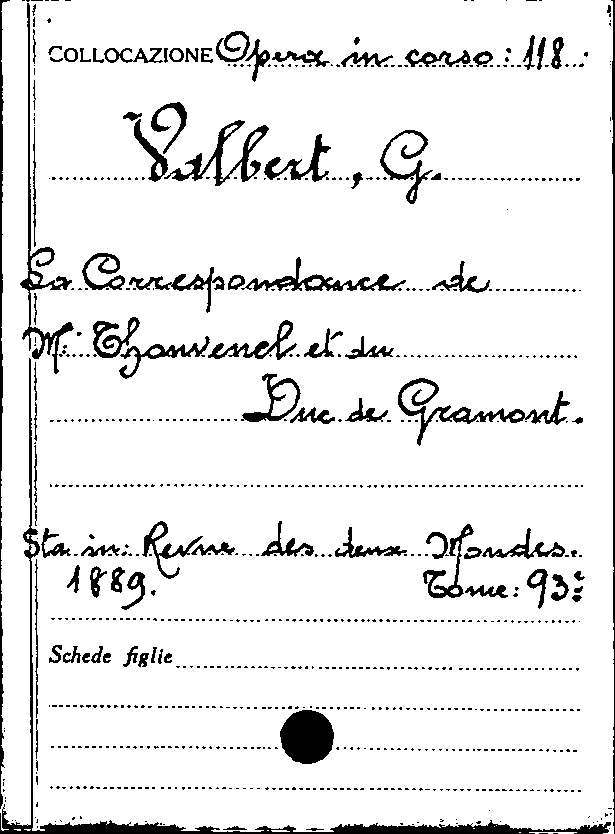 COLLOCAZIONE Opera in corso: 118.
Valbert, G.
La Correspondance de
M.r Thouvenel et du
Duc de Gramont.
Sta in: Revue des deux Mondes.
1889. Tome: 93e
Schede figlie